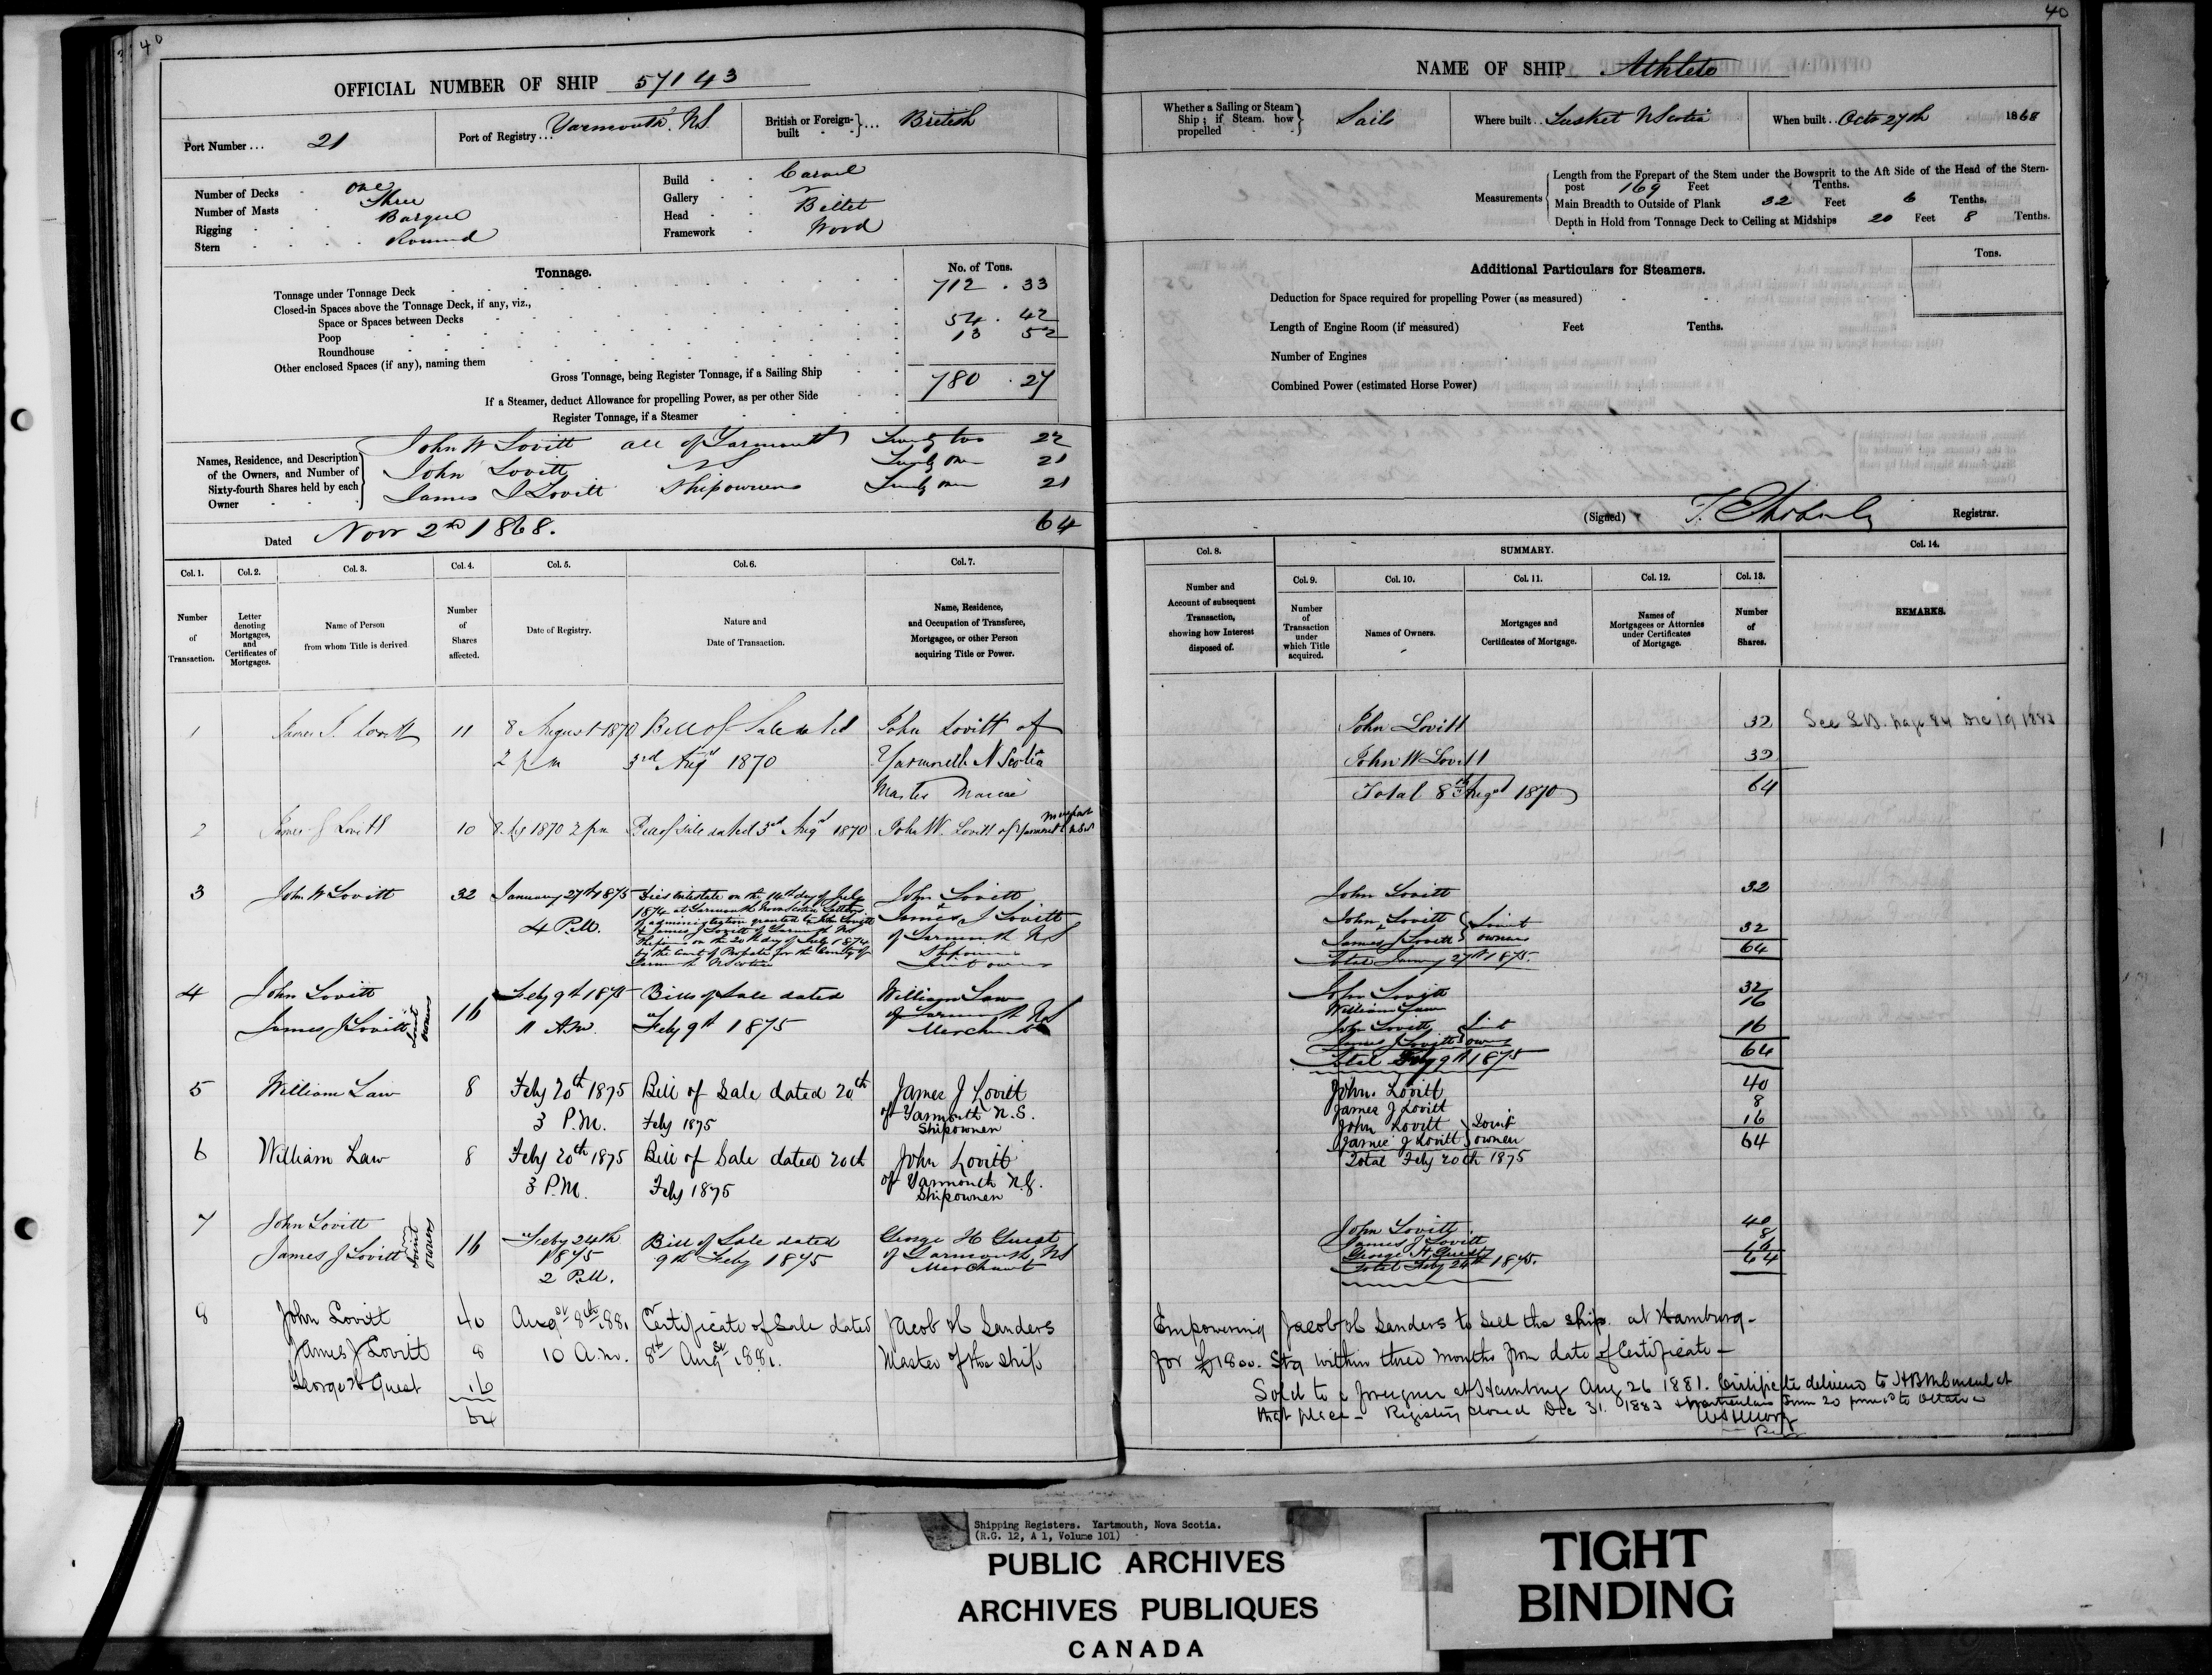 40
OFFICIAL NUMBER OF SHIP 57143
Port Number ... 21
Port of Registry ... Yarmouth. N.S.
British or Foreign-built ... British
Number of Decks One
Number of Masts Three
Rigging Barque
Stern Round
Build Carvel
Gallery
Head Billet
Framework Wood
Tonnage.
No. of Tons.
Tonnage under Tonnage Deck 712 . 33
Closed-in Spaces above the Tonnage Deck, if any, viz.,
Space or Spaces between Decks 54 . 42
Poop 13 52
Roundhouse
Other enclosed Spaces (if any), naming them
Gross Tonnage, being Register Tonnage, if a Sailing Ship 780 . 27
If a Steamer, deduct Allowance for propelling Power, as per other Side
Register Tonnage, if a Steamer
Names, Residence, and Description of the Owners, and Number of Sixty-fourth Shares held by each Owner
John W Lovitt all of Yarmouth Twenty two 22
John Lovitt NS Twenty one 21
James J Lovitt Shipowners Twenty one 21
64
Dated Nov 2nd 1868.
Col. 1. Col. 2. Col. 3. Col. 4. Col. 5. Col. 6. Col. 7.
Number of Transaction.
Letter denoting Mortgages, and Certificates of Mortgages.
Name of Person from whom Title is derived
Number of Shares affected.
Date of Registry.
Nature and Date of Transaction.
Name, Residence, and Occupation of Transferee, Mortgagee, or other Person acquiring Title or Power.
1 James J. Lovitt 11 8 August 1870 Bill of Sale dated John Lovitt of
2 pm 3rd Augt 1870 Yarmouth N Scotia
Master Mariner
2 James J Lovitt 10 8 Ag 1870 2 pm Bill of Sale dated 3rd Augt 1870 John W. Lovitt of Yarmouth
3 John W Lovitt 32 January 27th 1875 Dies intestate on the 14th day of July John Lovitt
4 P.M. 1874 at Yarmouth Nova Scotia Letters + James J Lovitt
of administration granted to John Lovitt of Yarmouth NS
& James J Lovitt of Yarmouth NS
Shipowners on the 20th day of July 1874 Shipowners
by the Court of Probate for the County of Joint owners
Yarmouth N Scotia
4 John Lovitt 16 Feby 9th 1875 Bill of Sale dated William Law
James J Lovitt Joint owners 11 A.M. Feby 9th 1875 of Yarmouth NS
Merchant
5 William Law 8 Feby 20th 1875 Bill of Sale dated 20th James J Lovitt
3 P.M. Feby 1875 of Yarmouth N.S.
Shipowner
6 William Law 8 Feby 20th 1875 Bill of Sale dated 20th John Lovitt
3 P.M. Feby 1875 of Yarmouth N.S.
Shipowner
7 John Lovitt 16 Feby 24th Bill of Sale dated George H Guest
James J Lovitt Joint owners 1875 9th Feby 1875 of Yarmouth, NS
2 P.M. Merchant
8 John Lovitt 40 Augst 8th 1881 Certificate of Sale dated Jacob H Sanders
James J Lovitt 8 10 A.M. 8th Augst 1881. Master of the ship
George H Guest 16
64
40
NAME OF SHIP Athlete
Whether a Sailing or Steam Ship; if Steam, how propelled Sails
Where built .. Tusket N Scotia
When built .. Octr 27th 1868
Measurements
Length from the Forepart of the Stem under the Bowsprit to the Aft Side of the Head of the Stern-
post 169 Feet Tenths.
Main Breadth to Outside of Plank 32 Feet 6 Tenths.
Depth in Hold from Tonnage Deck to Ceiling at Midships 20 Feet 8 Tenths.
Additional Particulars for Steamers.
Tons.
Deduction for Space required for propelling Power (as measured)
Length of Engine Room (if measured) Feet Tenths.
Number of Engines
Combined Power (estimated Horse Power)
(Signed) Registrar.
Col. 8. SUMMARY. Col. 14.
Col. 9. Col. 10. Col. 11. Col. 12. Col. 13.
Number and Account of subsequent Transaction, showing how Interest disposed of.
Number of Transaction under which Title acquired.
Names of Owners.
Mortgages and Certificates of Mortgage.
Names of Mortgagees or Attornies under Certificates of Mortgage.
Number of Shares.
REMARKS.
John Lovitt 32 See page 84 Dec 19 1883
John W Lovitt 32
Total 8th August 1870 64
John Lovitt 32
John Lovitt & James J Lovitt Joint owners 32
Total January 27th 1875. 64
John Lovitt 32
William Law 16
John Lovitt James J Lovitt Joint owners 16
Total Feby 9th 1875 64
John Lovitt 40
James J Lovitt 8
John Lovitt James J Lovitt Joint owners 16
Total Feby 20th 1875 64
John Lovitt 40
James J Lovitt 8
George H Guest 16
Total Feby 24th 1875. 64
Empowering Jacob H Sanders to sell the ship at Hamburg -
for £1800. Stg within three months from date of Certificate -
Sold to a foreigner at Hamburg Aug 26 1881. Certificate delivered to HBM Consul at
that place - Registry closed Dec 31. 1883 Form 20 to Ottawa
Shipping Registers. Yartmouth, Nova Scotia.
(R.G. 12, A 1, Volume 101)
PUBLIC ARCHIVES
ARCHIVES PUBLIQUES
CANADA
TIGHT
BINDING